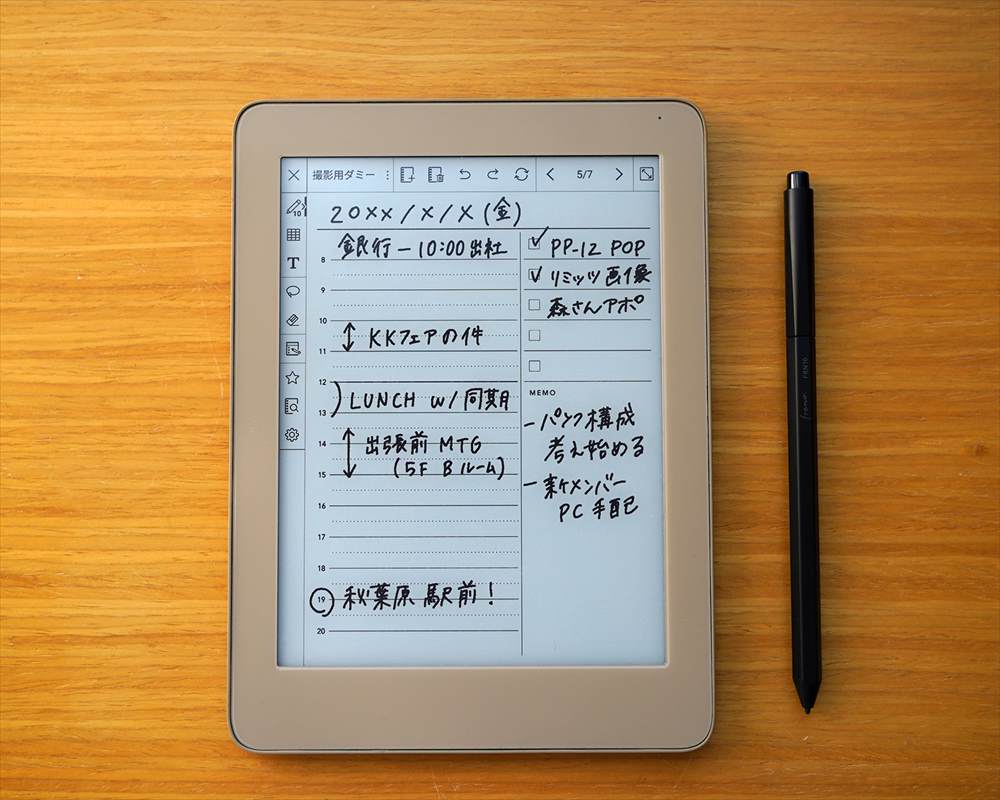 撮影用ダミー
5/7
10
T
20XX/X/X(金)
銀行 — 10:00出社
8
9
10
KKフェアの件
11
12
LUNCH w/同期
13
14
出張前 MTG
(5F Bルーム)
15
16
17
18
19
秋葉原 駅前!
20
PP-12 POP
リミッツ画像
森さんアポ
MEMO
— パンフ構成
考え始める
— 新メンバー
PC手配